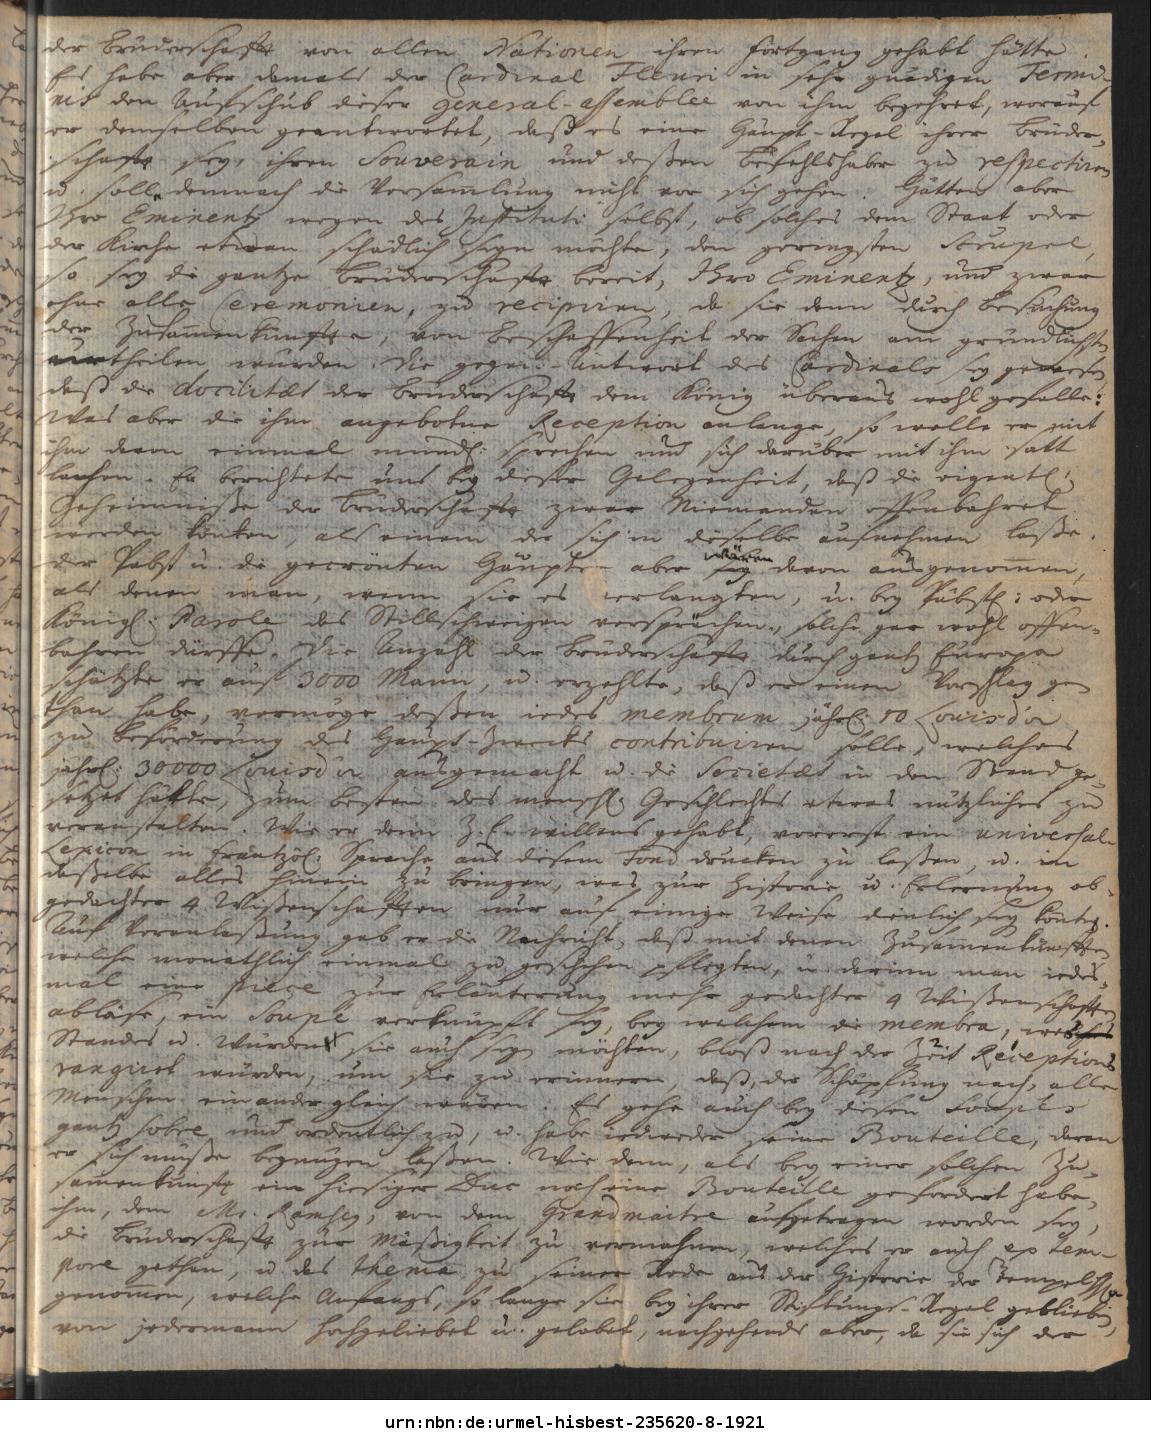 der Brüderschafft von allen Nationen ihren fortgang gehabt hätte.
Es habe aber damals der Cardinal Fleuri in sehr gnädigen Termi-
nis den Aufschub dieser general-assemblee von ihm begehret, worauf
er demselben geantwortet, daß es eine Haupt-Regel ihrer Brüder-
schafft sey, ihren Souverain und deßen Befehlshaber zu respectiren
u. solle demnach die Versamlung nicht vor sich gehen. Hätten aber
Ihro Eminentz wegen des Instituti selbst, ob solches dem Staat oder
der Kirche etwan schädlich seyn möchte, den geringsten Scrupel,
so sey die gantze Brüderschafft bereit, Ihro Eminentz, und zwar
ohne alle Ceremonien, zu recipiren, da sie denn durch Besuchung
der Zusammenkünffte, von Beschaffenheit der Sachen am gründlichsten
urtheilen würden. Die gegen-Antwort des Cardinals sey gewesen
daß die docilitaet der Brüderschafft dem König überaus wohl gefalle:
Was aber die ihm angebotne Reception anlange, so wolle er mit
ihm davon einmal mündl: sprechen und sich darüber mit ihm satt
lachen. Er berichtete uns bey dieser Gelegenheit, daß die eigentl:
Geheimniße der Brüderschafft zwar Niemanden offenbahret
werden könten, als einem der sich in dieselbe aufnehmen laße.
der Pabst u. die gecrönten Häupter aber wären davon ausgenommen,
als denen man, wenn sie es verlangten, u. bey Päbstl: oder
Königl: Parole des Stillschweigens versprächen, solche gar wohl offen-
bahren dürffe. Die Anzahl der Brüderschafft durch gantz Europa
schätzte er auf 3000 Mann, u. erzehlte, daß er einen Vorschlag ge-
than habe, vermöge deßen iedes membrum jährl: 10 Louisd'or
zu Beförderung des Haupt-Zwecks contribuiren solle, welches
jährl: 30000 Louisd'or ausgemacht u. die Societaet in den Stand ge-
setzet hätte, zum besten des menschl: Geschlechts etwas nützliches zu
veranstalten. Wie er denn Z.E. willens gehabt, vorerst ein universal-
Lexicon in frantzös: Sprache aus diesem Fond drucken zu laßen, u. in
daßelbe alles hinein zu bringen, was zur Historie u. Erlernung ob-
gedachter 4 Wißenschafften nur auf einige Weise dienlich sey könte.
Auf Veranlaßung gab er die Nachricht, daß mit denen Zusammenkünfften
welche monathlich einmal zu geschehen pflegten, u. darinn man iedes-
mal eine piece zur Erläuterung mehr gedachter 4 Wißenschafften
abläse, ein Soupé verknüpft sey, bey welchem die membra, welches
Standes u. Würden sie auch seyn möchten, bloß nach der Zeit Receptions
rangiret würden, um sie zu erinnern, daß, der Schöpfung nach, alle
Menschen einander gleich wären. Es gehe auch bey diesen Soupés
gantz sobre und ordentlich zu, u. habe iedweder seine Bouteille, daran
er sich müße begnügen laßen. Wie denn, als bey einer solchen Zu-
sammenkunft ein hiesiger Duc noch eine Bouteille gefordert habe,
ihm, dem Mr. Ramsey, von dem Grandmaitre aufgetragen worden sey,
die Brüderschafft zur Mäßigkeit zu vermahnen, welches er auch ex tem-
pore gethan, u. das thema zu seiner Rede aus der Historie der Tempelh
genommen, welche Anfangs, so lange sie bey ihrer Stiftungs-Regel geblieben,
von jedermann hochgeliebet u. gelobet, nachgehends aber, da sie sich der
urn:nbn:de:urmel-hisbest-235620-8-1921